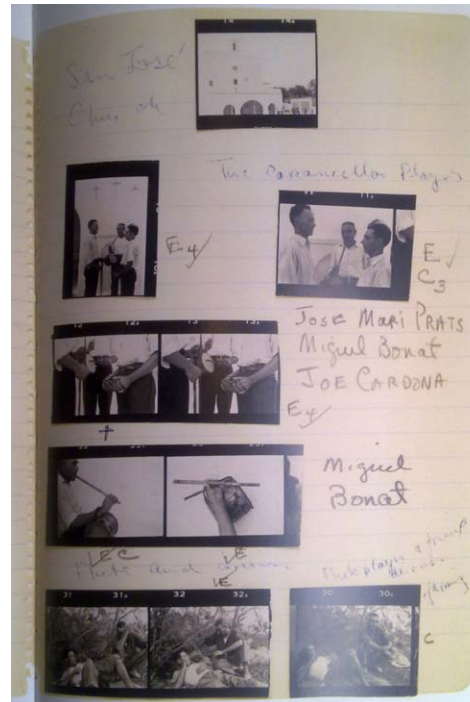 14 14.
San José
Church
The Carcancellas Players
E4 ✓
E ✓
C3
JOSE MARI PRATS
Miguel Bonat
JOE CARDONA
12 12. 13
E4 ✓
Miguel
Bonat
E C
E
Flute and drum
E
Flute player & friend
31 31. 32 32.
30 30.
C